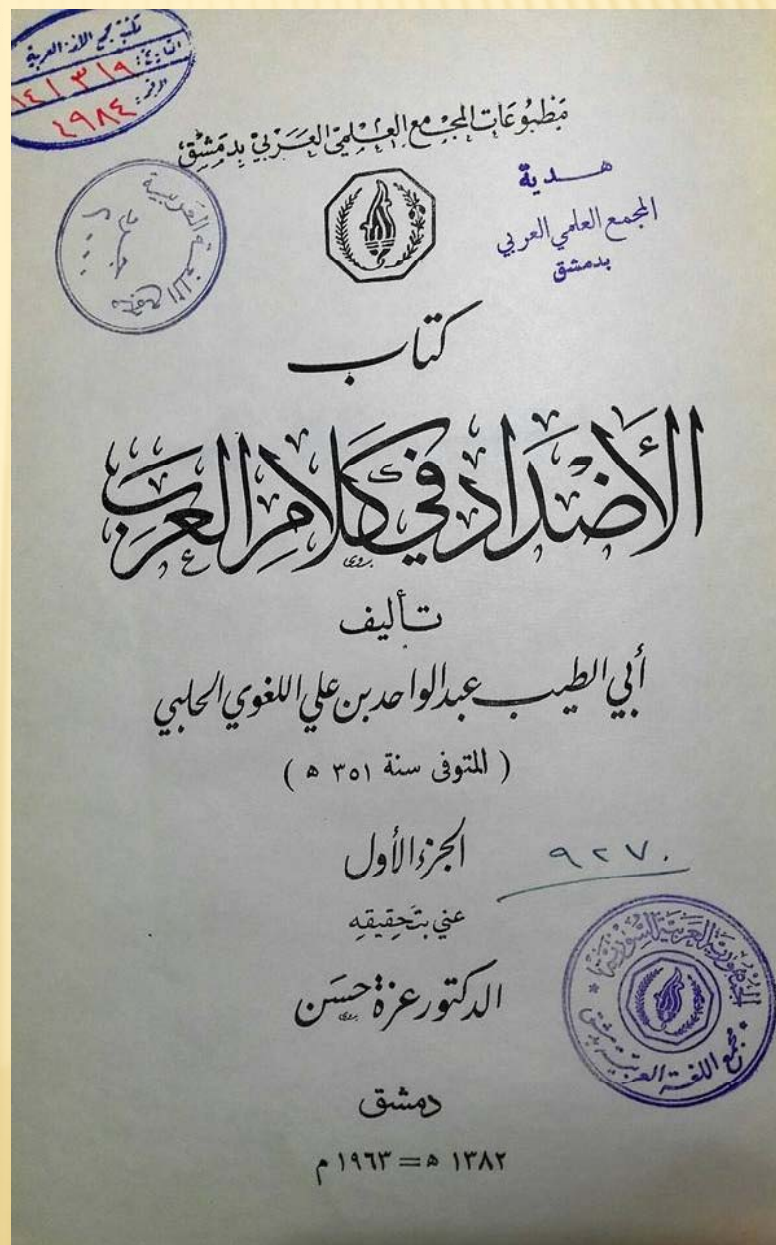 مكتبة مجمع اللغة العربية
التاريخ: ١٤/٣/٩
الرقم: ٤٩٨٤
مَطبُوعَات المجْمَع العِلْمي العَرَبي بِدمَشْق
هدية
المجمع العلمي العربي
بدمشق
مجمع اللغة العربية
كتاب
الأَضْدَاد في كَلَامِ العَرَب
تأليف
أبي الطيب عبد الواحد بن علي اللغوي الحلبي
( المتوفى سنة ٣٥١ ھ )
الجزء الأول
٩٢٧٠
عني بتَحقِيقِه
الدكتور عزة حسَن
الجمهورية العربية السورية
مجمع اللغة العربية بدمشق
دمشق
١٣٨٢ ھ = ١٩٦٣ م